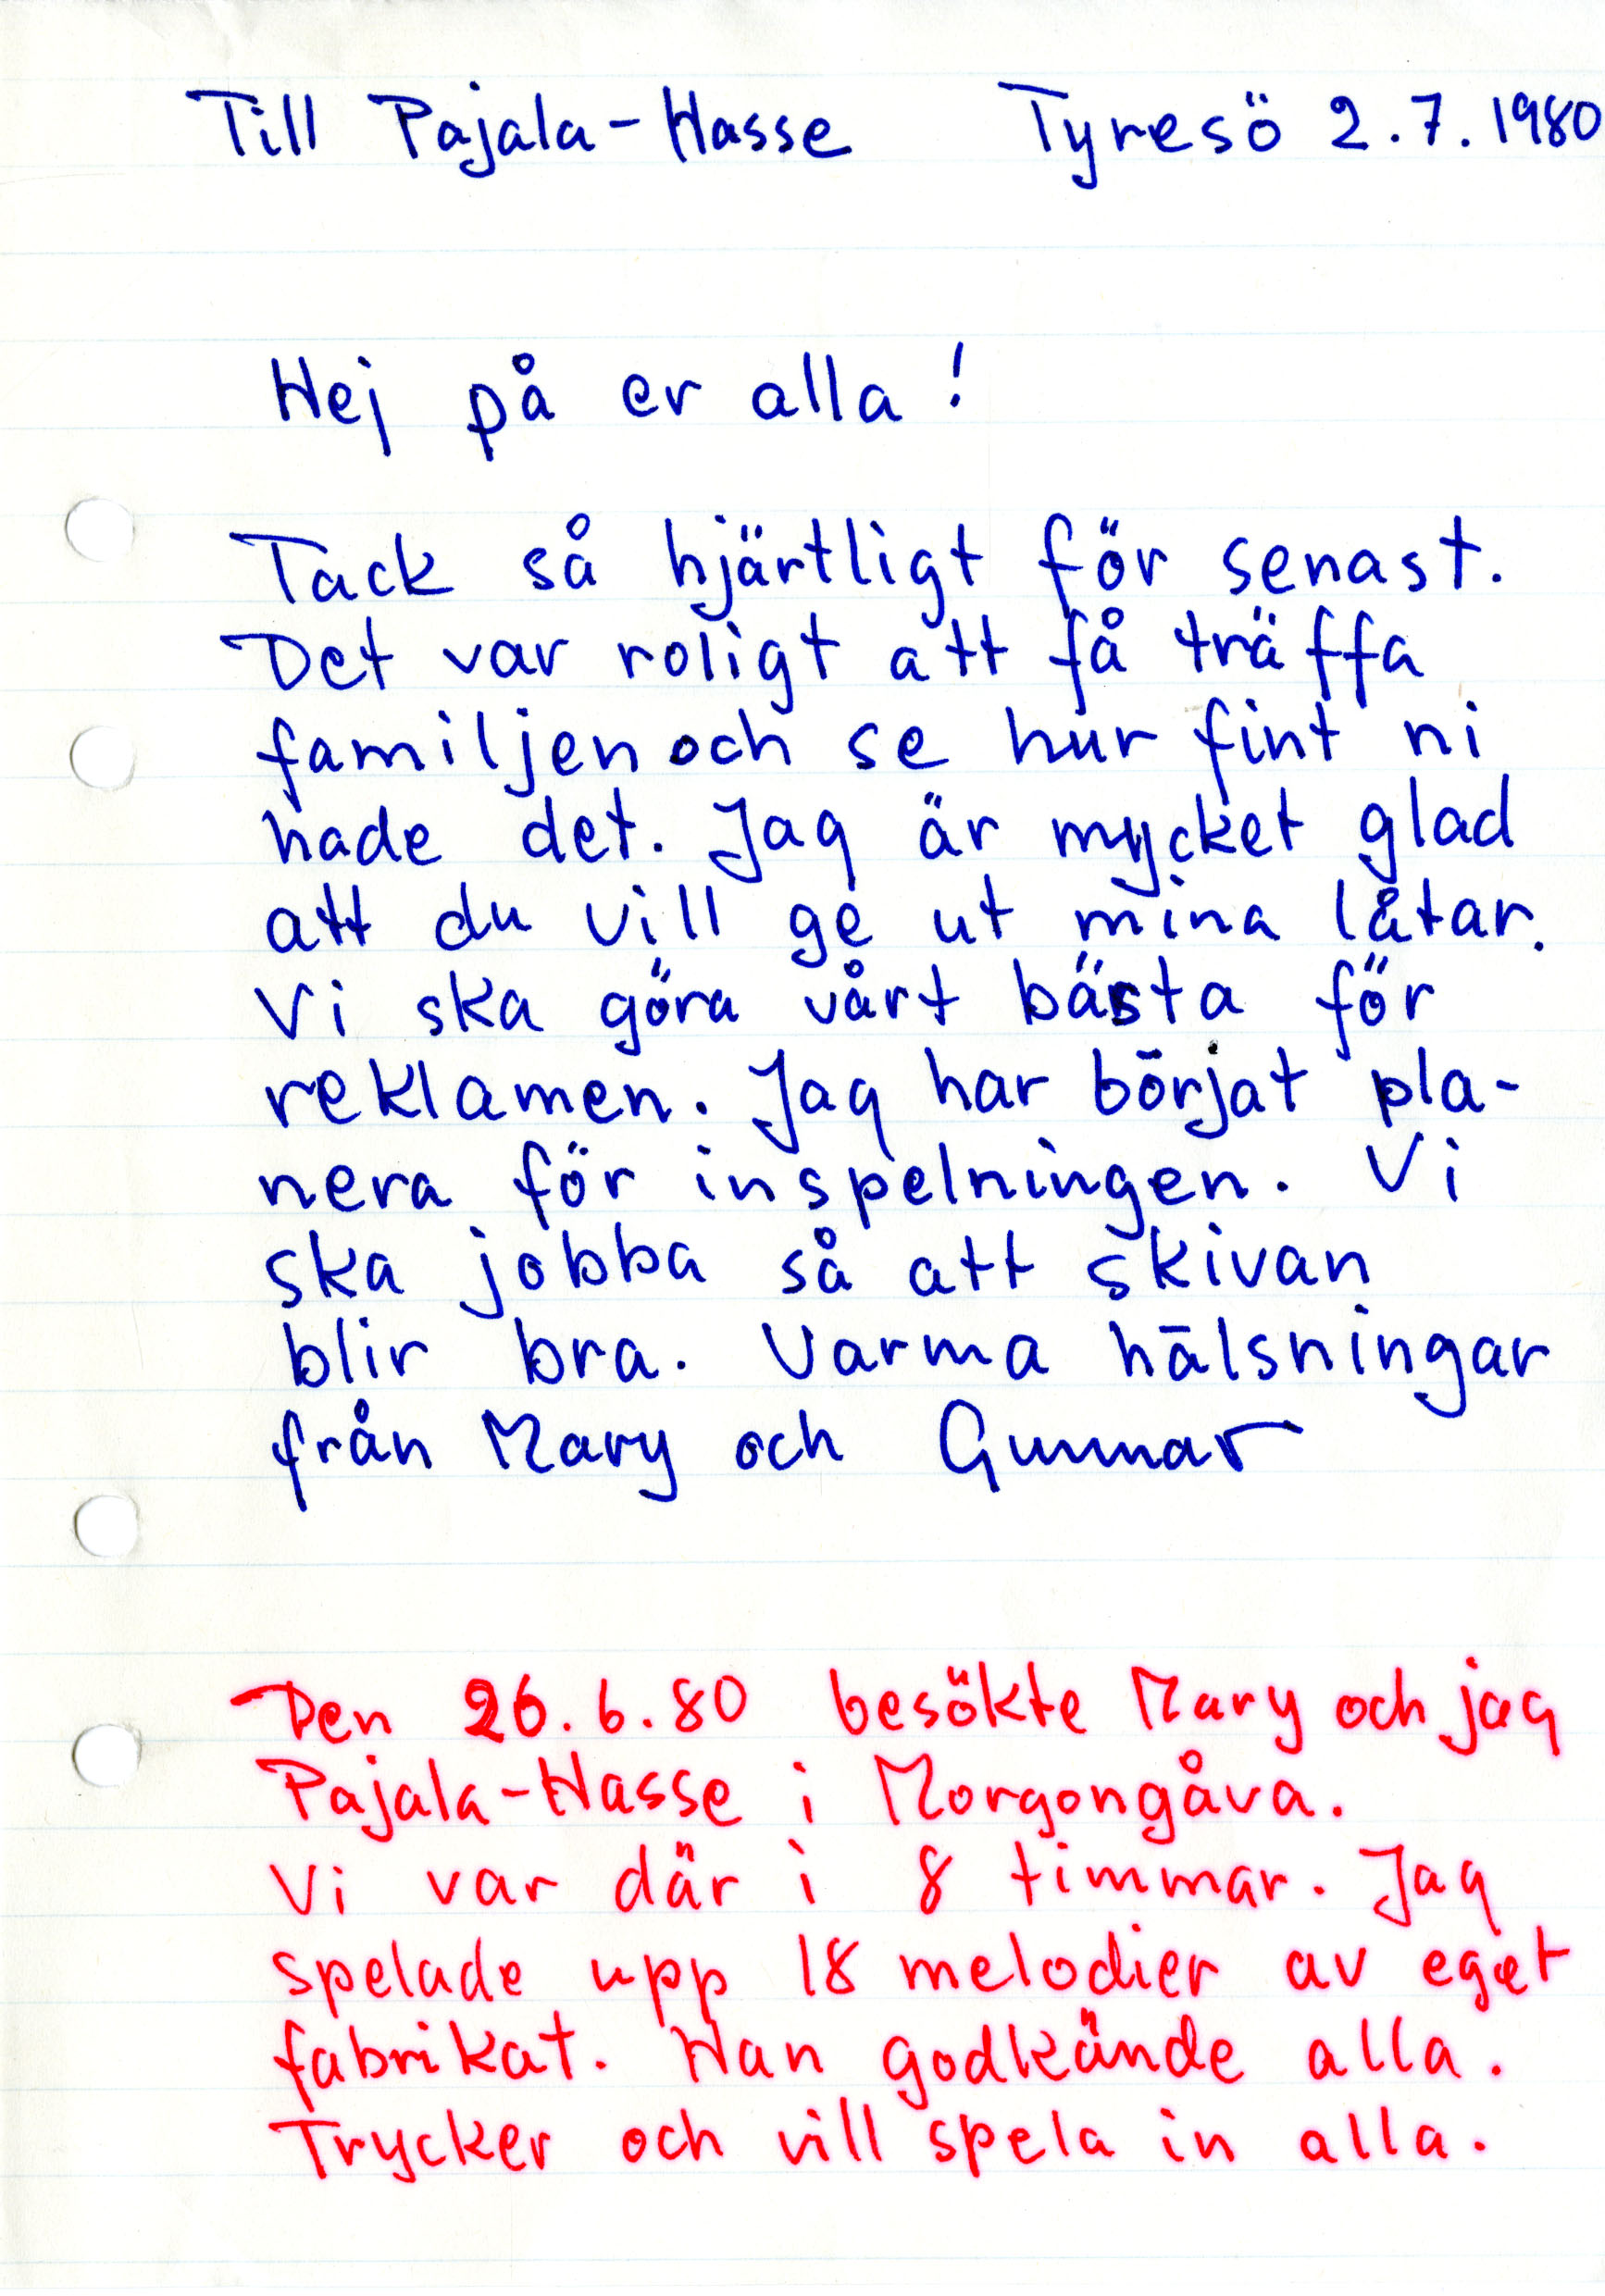 Till Pajala-Hasse Tyresö 2.7.1980
Hej på er alla!
Tack så hjärtligt för senast.
Det var roligt att få träffa
familjen och se hur fint ni
hade det. Jag är mycket glad
att du vill ge ut mina låtar.
Vi ska göra vårt bästa för
reklamen. Jag har börjat pla-
nera för inspelningen. Vi
ska jobba så att skivan
blir bra. Varma hälsningar
från Mary och Gunnar
Den 26.6.80 besökte Mary och jag
Pajala-Hasse i Morgongåva.
Vi var där i 8 timmar. Jag
spelade upp 18 melodier av eget
fabrikat. Han godkände alla.
Trycker och vill spela in alla.